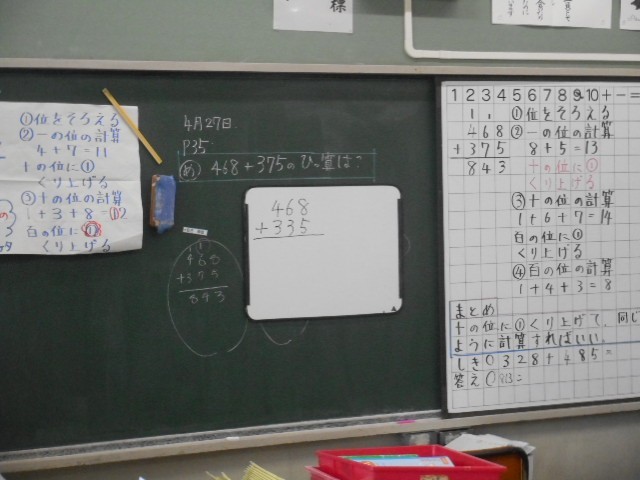 様
①位をそろえる
②一の位の計算
4+7=11
1の位に①
くり上げる
③十の位の計算
1+3+8=12
百の位に①
くり上げる
4月27日.
P35.
め 468+375のひっ算は?
468
+375
843
468
+335
1 2 3 4 5 6 7 8 9 10 + - =
1 1 ①位をそろえる
468 ②一の位の計算
+375 8+5=13
843 十の位に①
くり上げる
③十の位の計算
1+6+7=14
百の位に①
くり上げる
④百の位の計算
1+4+3=8
まとめ
十の位に①くり上げて、同じ
ように計算すればいい。
しき○328+485=
答え○